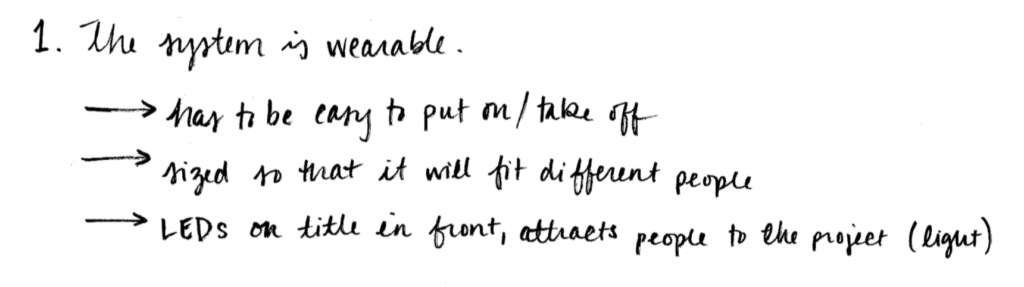 1. The system is wearable.
⟶ has to be easy to put on/take off
⟶ sized so that it will fit different people
⟶ LEDs on title in front, attracts people to the project (light)